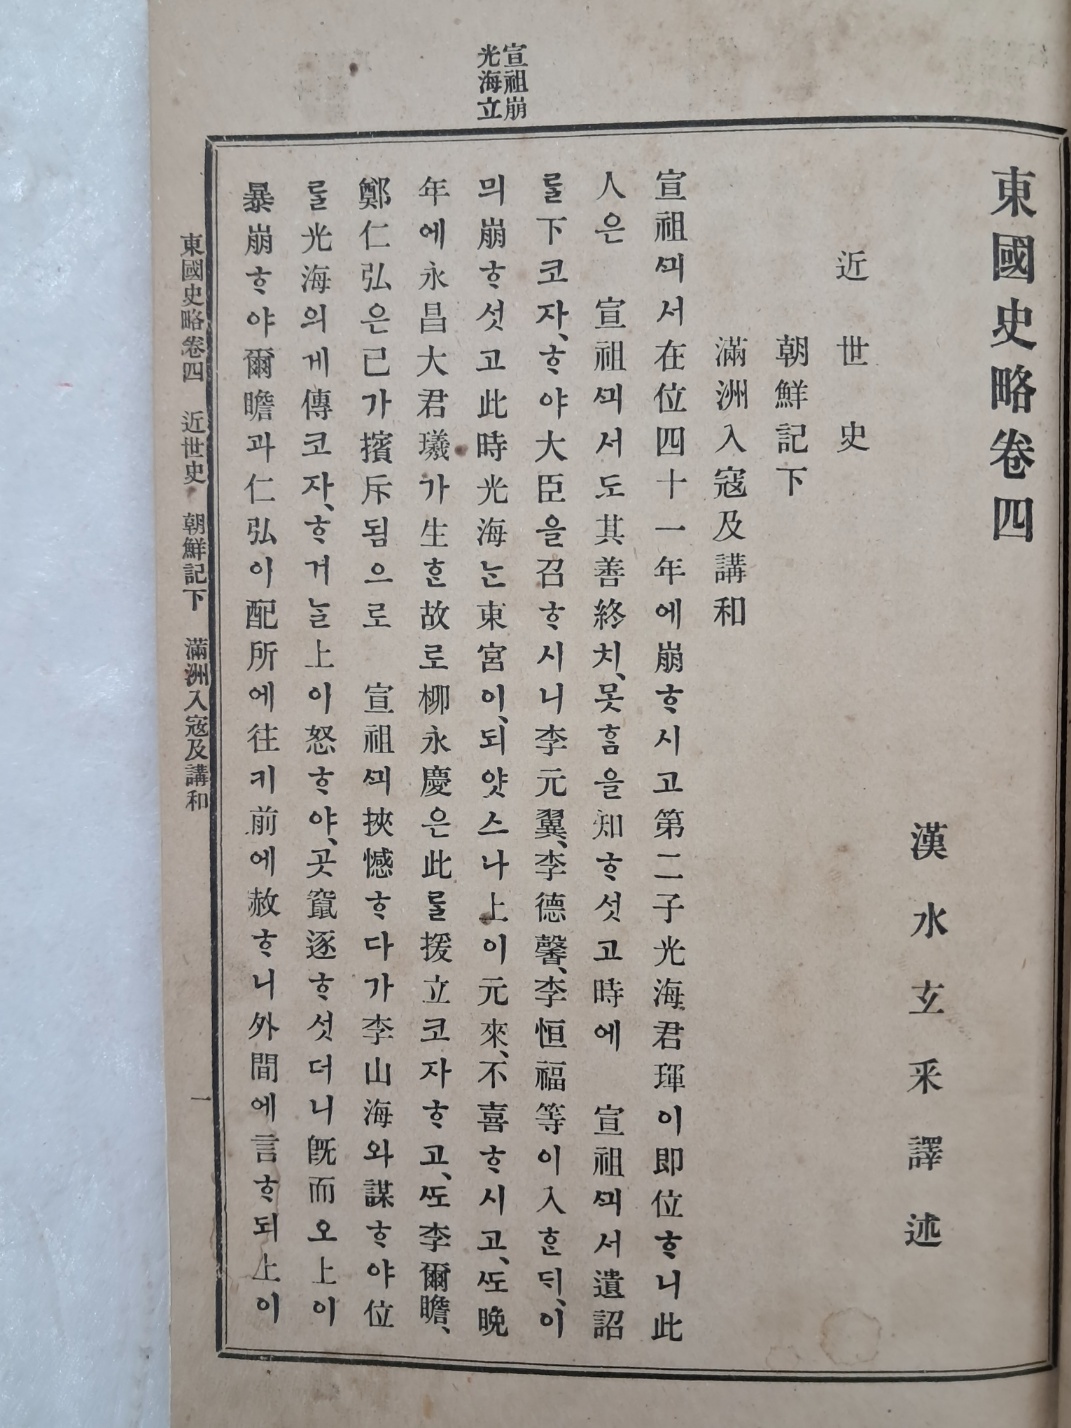 宣祖崩
光海立
東國史略卷四
漢水玄采譯述
近世史
朝鮮記下
滿洲入寇及講和
宣祖ᄭᅴ서在位四十一年에崩ᄒᆞ시고第二子光海君琿이即位ᄒᆞ니此
人은 宣祖ᄭᅴ서도其善終치、못ᄒᆞᆷ을知ᄒᆞ섯고時에 宣祖ᄭᅴ서遺詔
ᄅᆞᆯ下코자、ᄒᆞ야大臣을召ᄒᆞ시니李元翼、李德馨、李恒福等이入ᄒᆞᆫᄃᆡ、이
믜崩ᄒᆞ섯고此時光海ᄂᆞᆫ東宮이、되얏스나上이元來、不喜ᄒᆞ시고、ᄯᅩ晩
年에永昌大君㼁가生ᄒᆞᆫ故로柳永慶은此ᄅᆞᆯ援立코자ᄒᆞ고、ᄯᅩ李爾瞻、
鄭仁弘은已가擯斥됨으로 宣祖ᄭᅴ挾憾ᄒᆞ다가李山海와謀ᄒᆞ야位
ᄅᆞᆯ光海의게傳코자、ᄒᆞ거ᄂᆞᆯ上이怒ᄒᆞ야、곳竄逐ᄒᆞ섯더니旣而오上이
暴崩ᄒᆞ야爾瞻과仁弘이配所에往키前에赦ᄒᆞ니外間에言ᄒᆞ되上이
東國史略卷四 近世史 朝鮮記下 滿洲入寇及講和 一